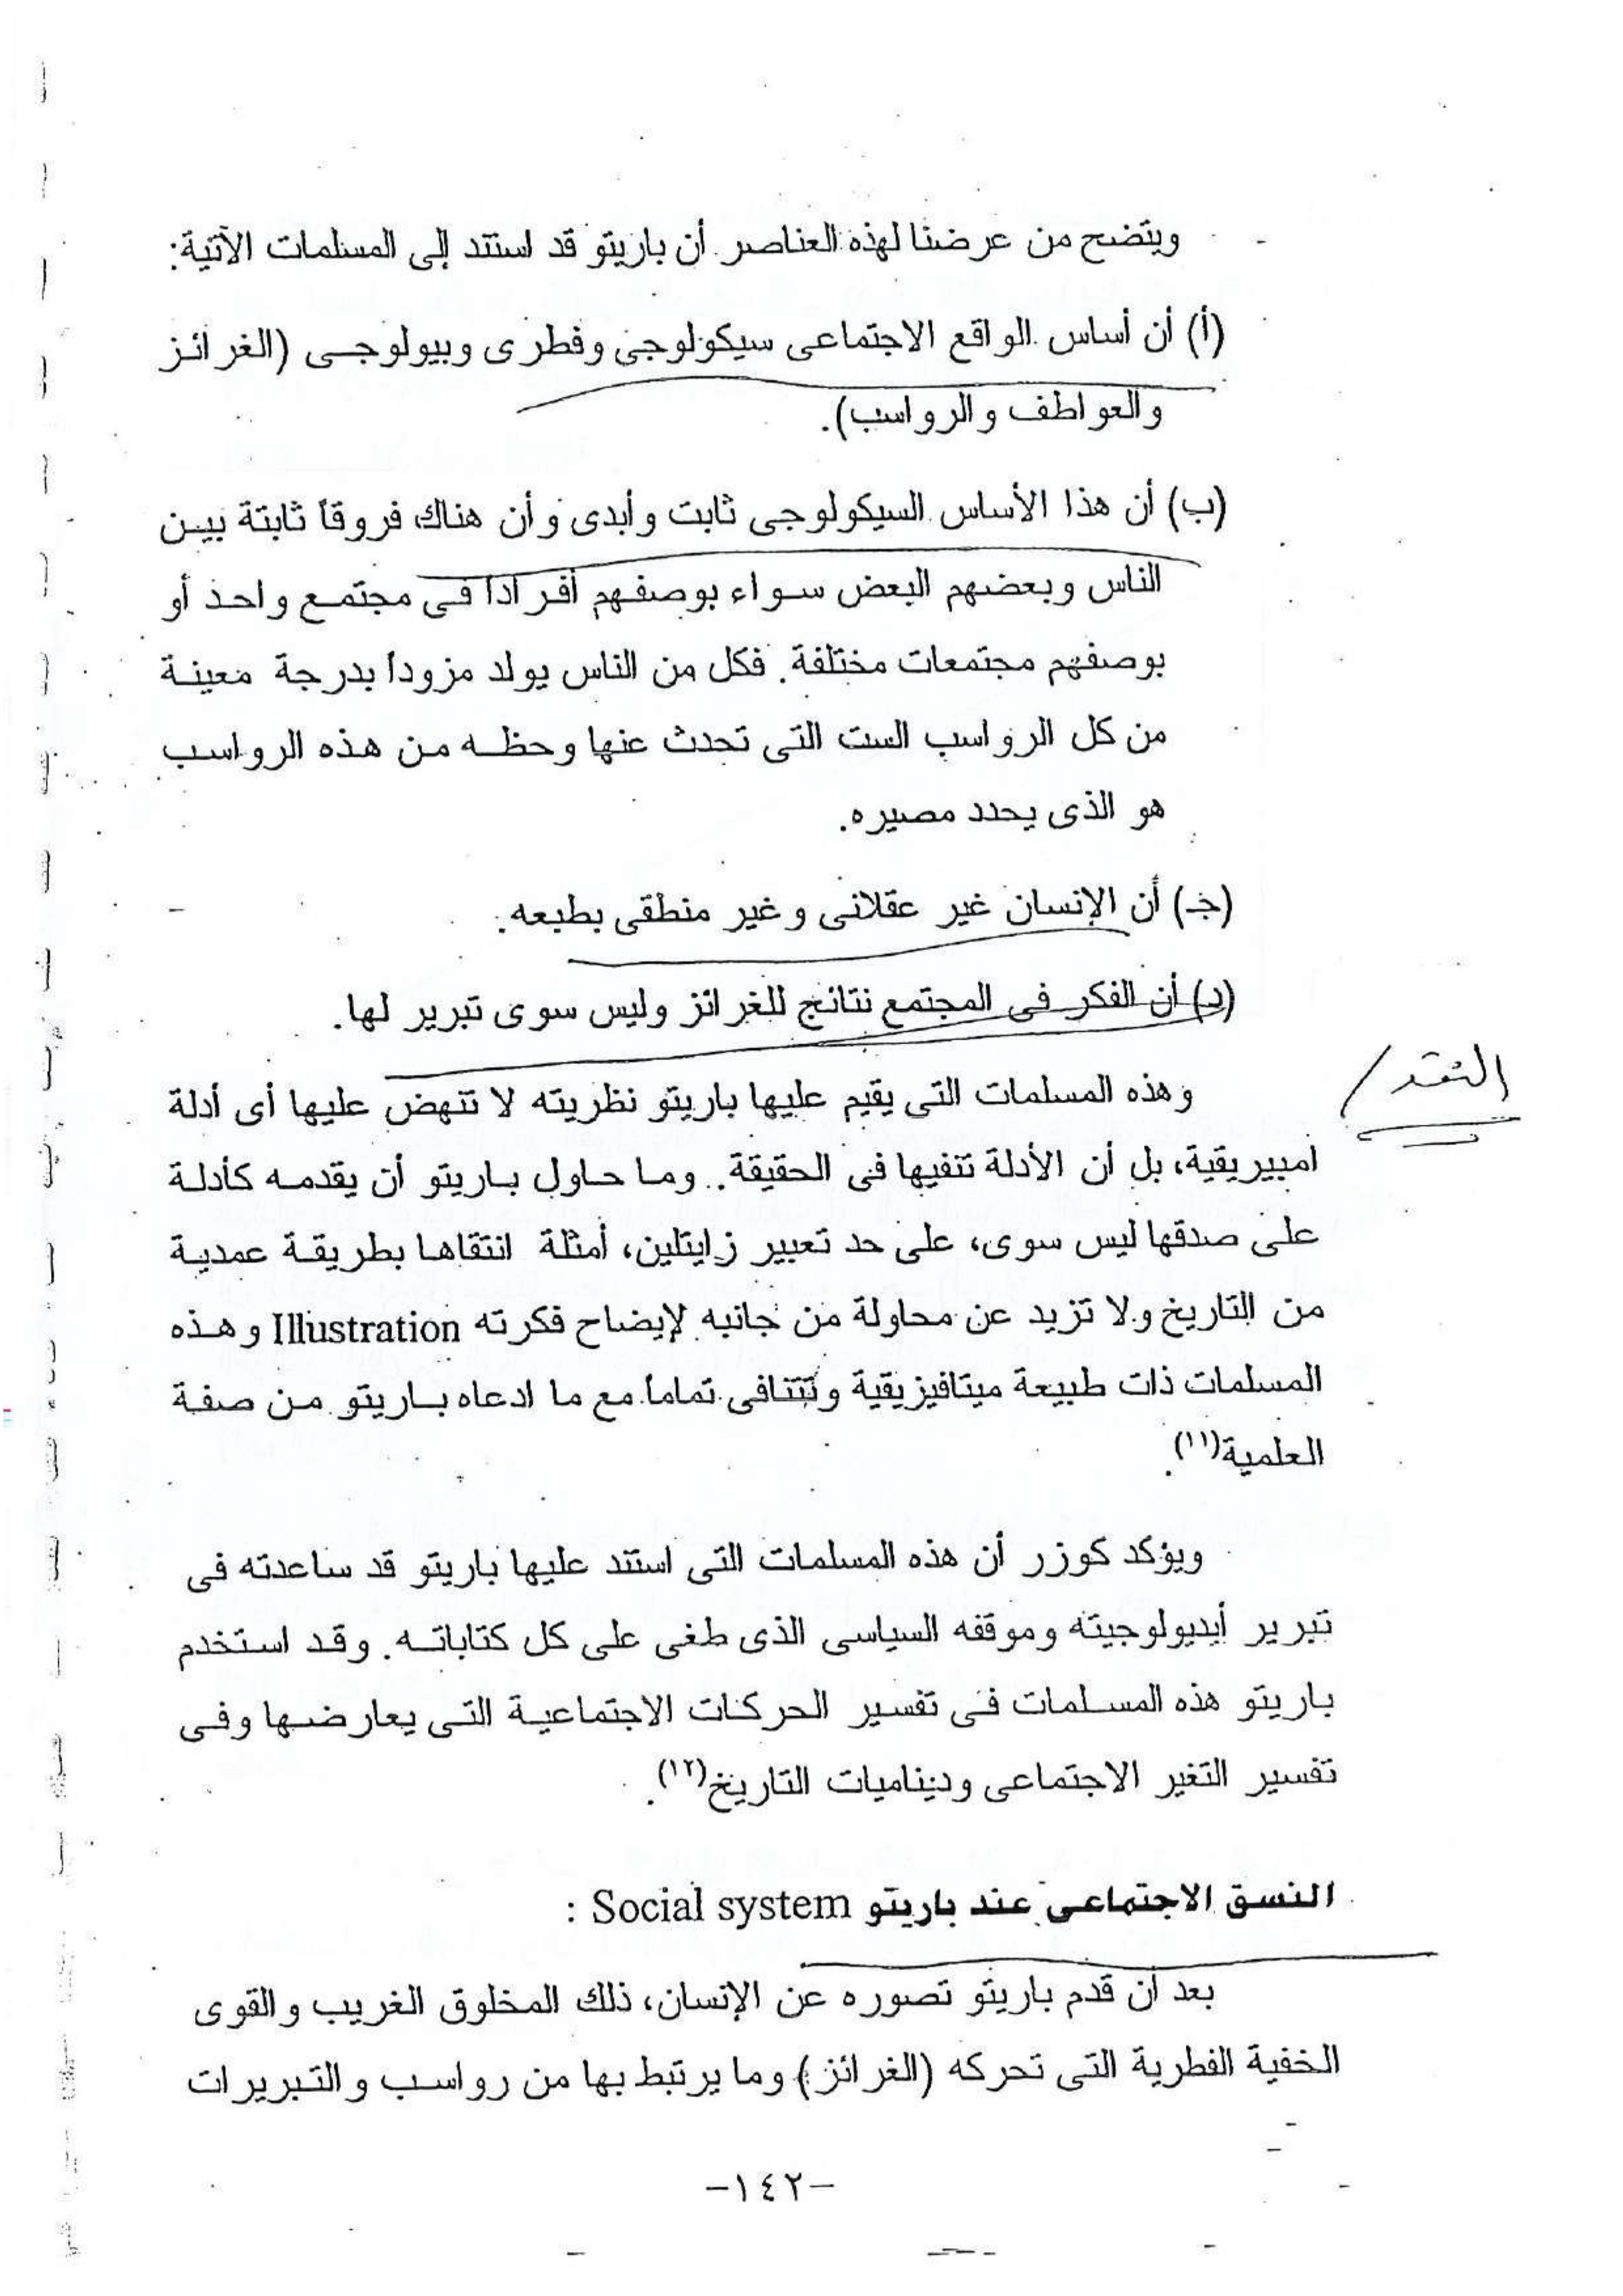 ويتضح من عرضنا لهذه العناصر أن باريتو قد استند إلى المسلمات الآتية:
(أ) أن أساس الواقع الاجتماعى سيكولوجى وفطرى وبيولوجى (الغرائز
والعواطف والرواسب).
(ب) أن هذا الأساس السيكولوجى ثابت وأبدى وأن هناك فروقاً ثابتة بين
الناس وبعضهم البعض سواء بوصفهم أفراداً فى مجتمع واحد أو
بوصفهم مجتمعات مختلفة. فكل من الناس يولد مزوداً بدرجة معينة
من كل الرواسب الست التى تحدث عنها وحظه من هذه الرواسب
هو الذى يحدد مصيره.
(جـ) أن الإنسان غير عقلانى وغير منطقى بطبعه.
(د) أن الفكر فى المجتمع نتائج للغرائز وليس سوى تبرير لها.
النقد /
وهذه المسلمات التى يقيم عليها باريتو نظريته لا تنهض عليها أى أدلة
امبيريقية، بل أن الأدلة تنفيها فى الحقيقة. وما حاول باريتو أن يقدمه كأدلة
على صدقها ليس سوى، على حد تعبير زايتلين، أمثلة انتقاها بطريقة عمدية
من التاريخ ولا تزيد عن محاولة من جانبه لإيضاح فكرته Illustration وهذه
المسلمات ذات طبيعة ميتافيزيقية وتتنافى تماما مع ما ادعاه باريتو من صفة
العلمية(١١).
ويؤكد كوزر أن هذه المسلمات التى استند عليها باريتو قد ساعدته فى
تبرير أيديولوجيته وموقفه السياسى الذى طغى على كل كتاباته. وقد استخدم
باريتو هذه المسلمات فى تفسير الحركات الاجتماعية التى يعارضها وفى
تفسير التغير الاجتماعى وديناميات التاريخ(١٢).
النسق الاجتماعى عند باريتو Social system :
بعد أن قدم باريتو تصوره عن الإنسان، ذلك المخلوق الغريب والقوى
الخفية الفطرية التى تحركه (الغرائز) وما يرتبط بها من رواسب والتبريرات
-١٤٢-